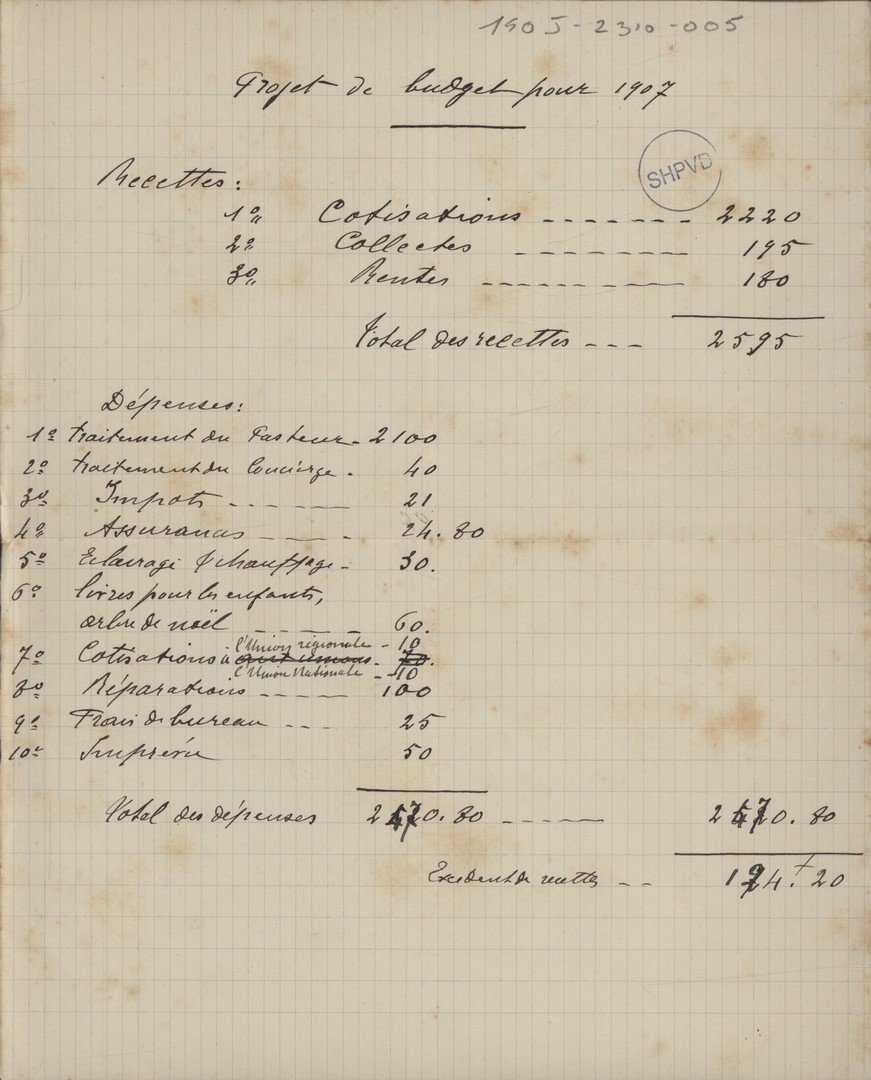 190J-2310-005
Projet de budget pour 1907
SHPVD
Recettes:
1º Cotisations ------- 2220
2º Collectes ------- 195
3º Rentes ------- 180
Total des recettes --- 2595
Dépenses:
1º traitement du Pasteur - 2100
2º traitement du Concierge - 40
3º Impots ------ 21
4º Assurances ----- 24.80
5º Eclairage & chauffage - 30.
6º livres pour les enfants,
arbre de noël ----- 60.
l'Union régionale - 10
7º Cotisations à
l'Union Nationale -- 10
8º Réparations ----- 100
9º Frais de bureau --- 25
10º Imprévu 50
Total des dépenses 2470.80 ----- 2470.80
Excedent de recettes -- 124.20